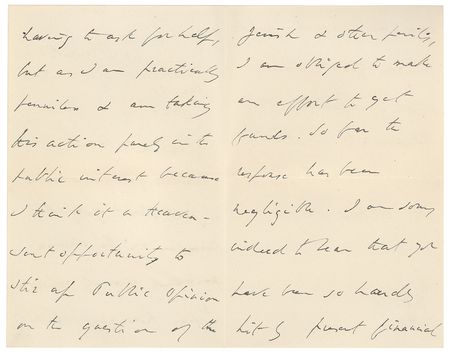 having to ask for help,
but as I am practically
penniless & am taking
this action purely in the
public interest because
I think it a heaven-
sent opportunity to
stir up Public Opinion
on the question of the
Jewish & other perils,
I am obliged to make
an effort to get
funds. So far the
response has been
negligible. I am sorry
indeed to hear that you
have been so heavily
hit by present financial